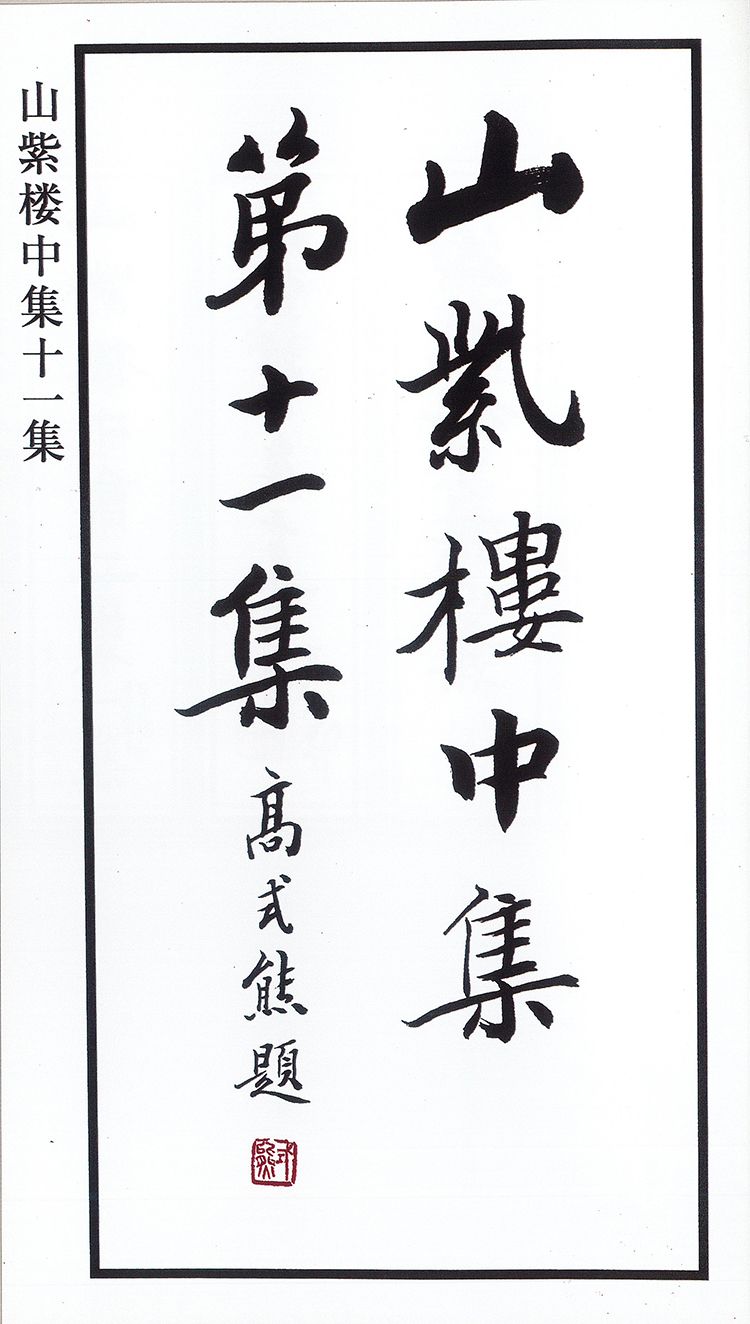 山紫樓中集
第十一集
高式熊題
式熊
山紫楼中集十一集